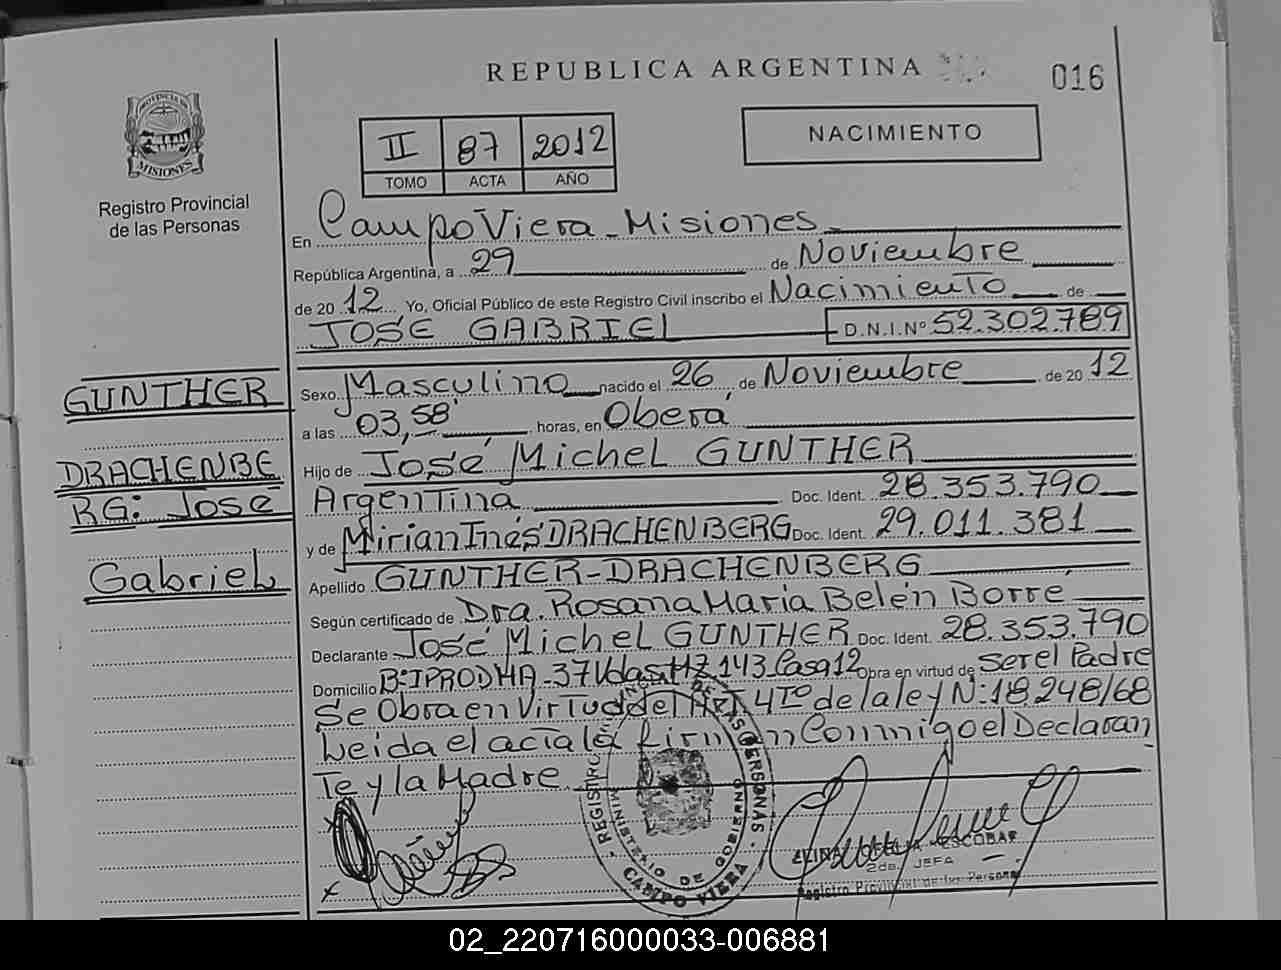 REPUBLICA ARGENTINA
016
PROVINCIA DE
MISIONES
Registro Provincial
de las Personas
NACIMIENTO
II 87 2012
TOMO ACTA AÑO
En Campo Viera - Misiones
República Argentina, a 29 de Noviembre
de 2012 Yo, Oficial Público de este Registro Civil inscribo el Nacimiento de
JOSÉ GABRIEL D.N.I.Nº 52.302.789
GUNTHER
DRACHENBE
RG: José
Gabriel
Sexo Masculino nacido el 26 de Noviembre de 2012
a las 03,58' horas, en Oberá
Hijo de José Michel GUNTHER
Argentina Doc. Ident. 28.353.790
y de Mirian Inés DRACHENBERG Doc. Ident. 29.011.381
Apellido GUNTHER-DRACHENBERG
Según certificado de Dra. Rosana María Belén Borré
Declarante José Michel GUNTHER Doc. Ident. 28.353.790
Domicilio Bº IPRODHA-37 Vdas. Mz 143 Casa 12 Obra en virtud de Ser el Padre
Se Obra en Virtud del Art 4to de la ley N: 18.248/68
Leida el acta la firman Conmigo el Declaran
Te y la Madre
REGISTRO PROVINCIAL DE LAS PERSONAS
MINISTERIO DE GOBIERNO
CAMPO VIERA
ESCOBAR
2da. JEFA
Registro Provincial de las Personas
02_220716000033-006881